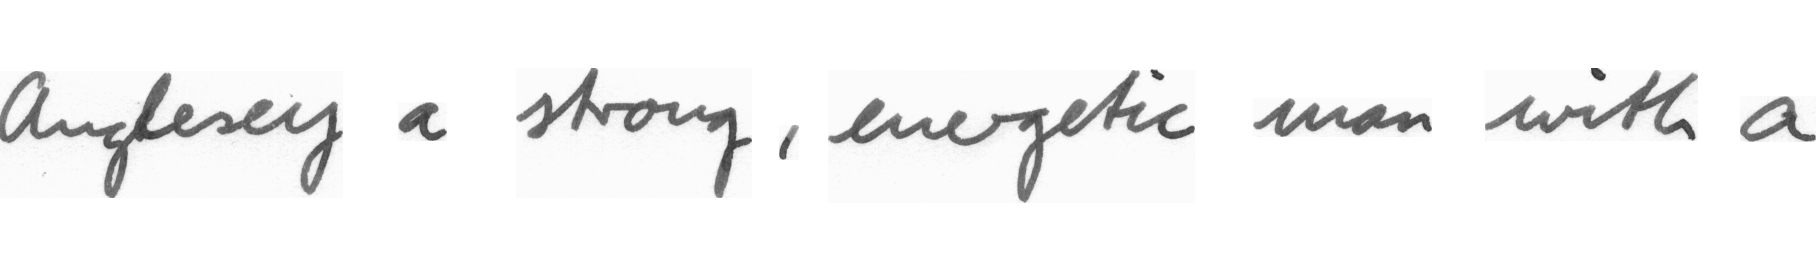 Anglesey a strong, energetic man with a